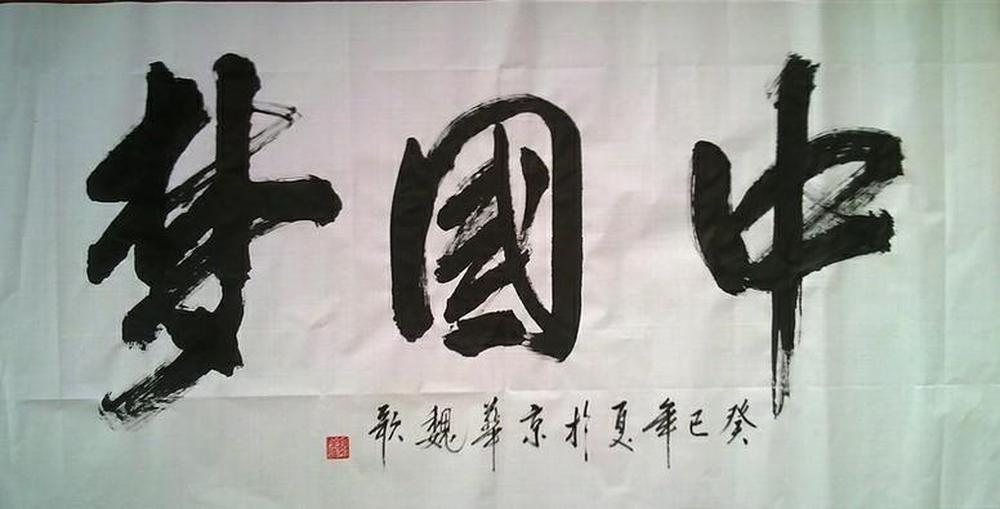 中國梦
癸巳年夏於京華魏歌